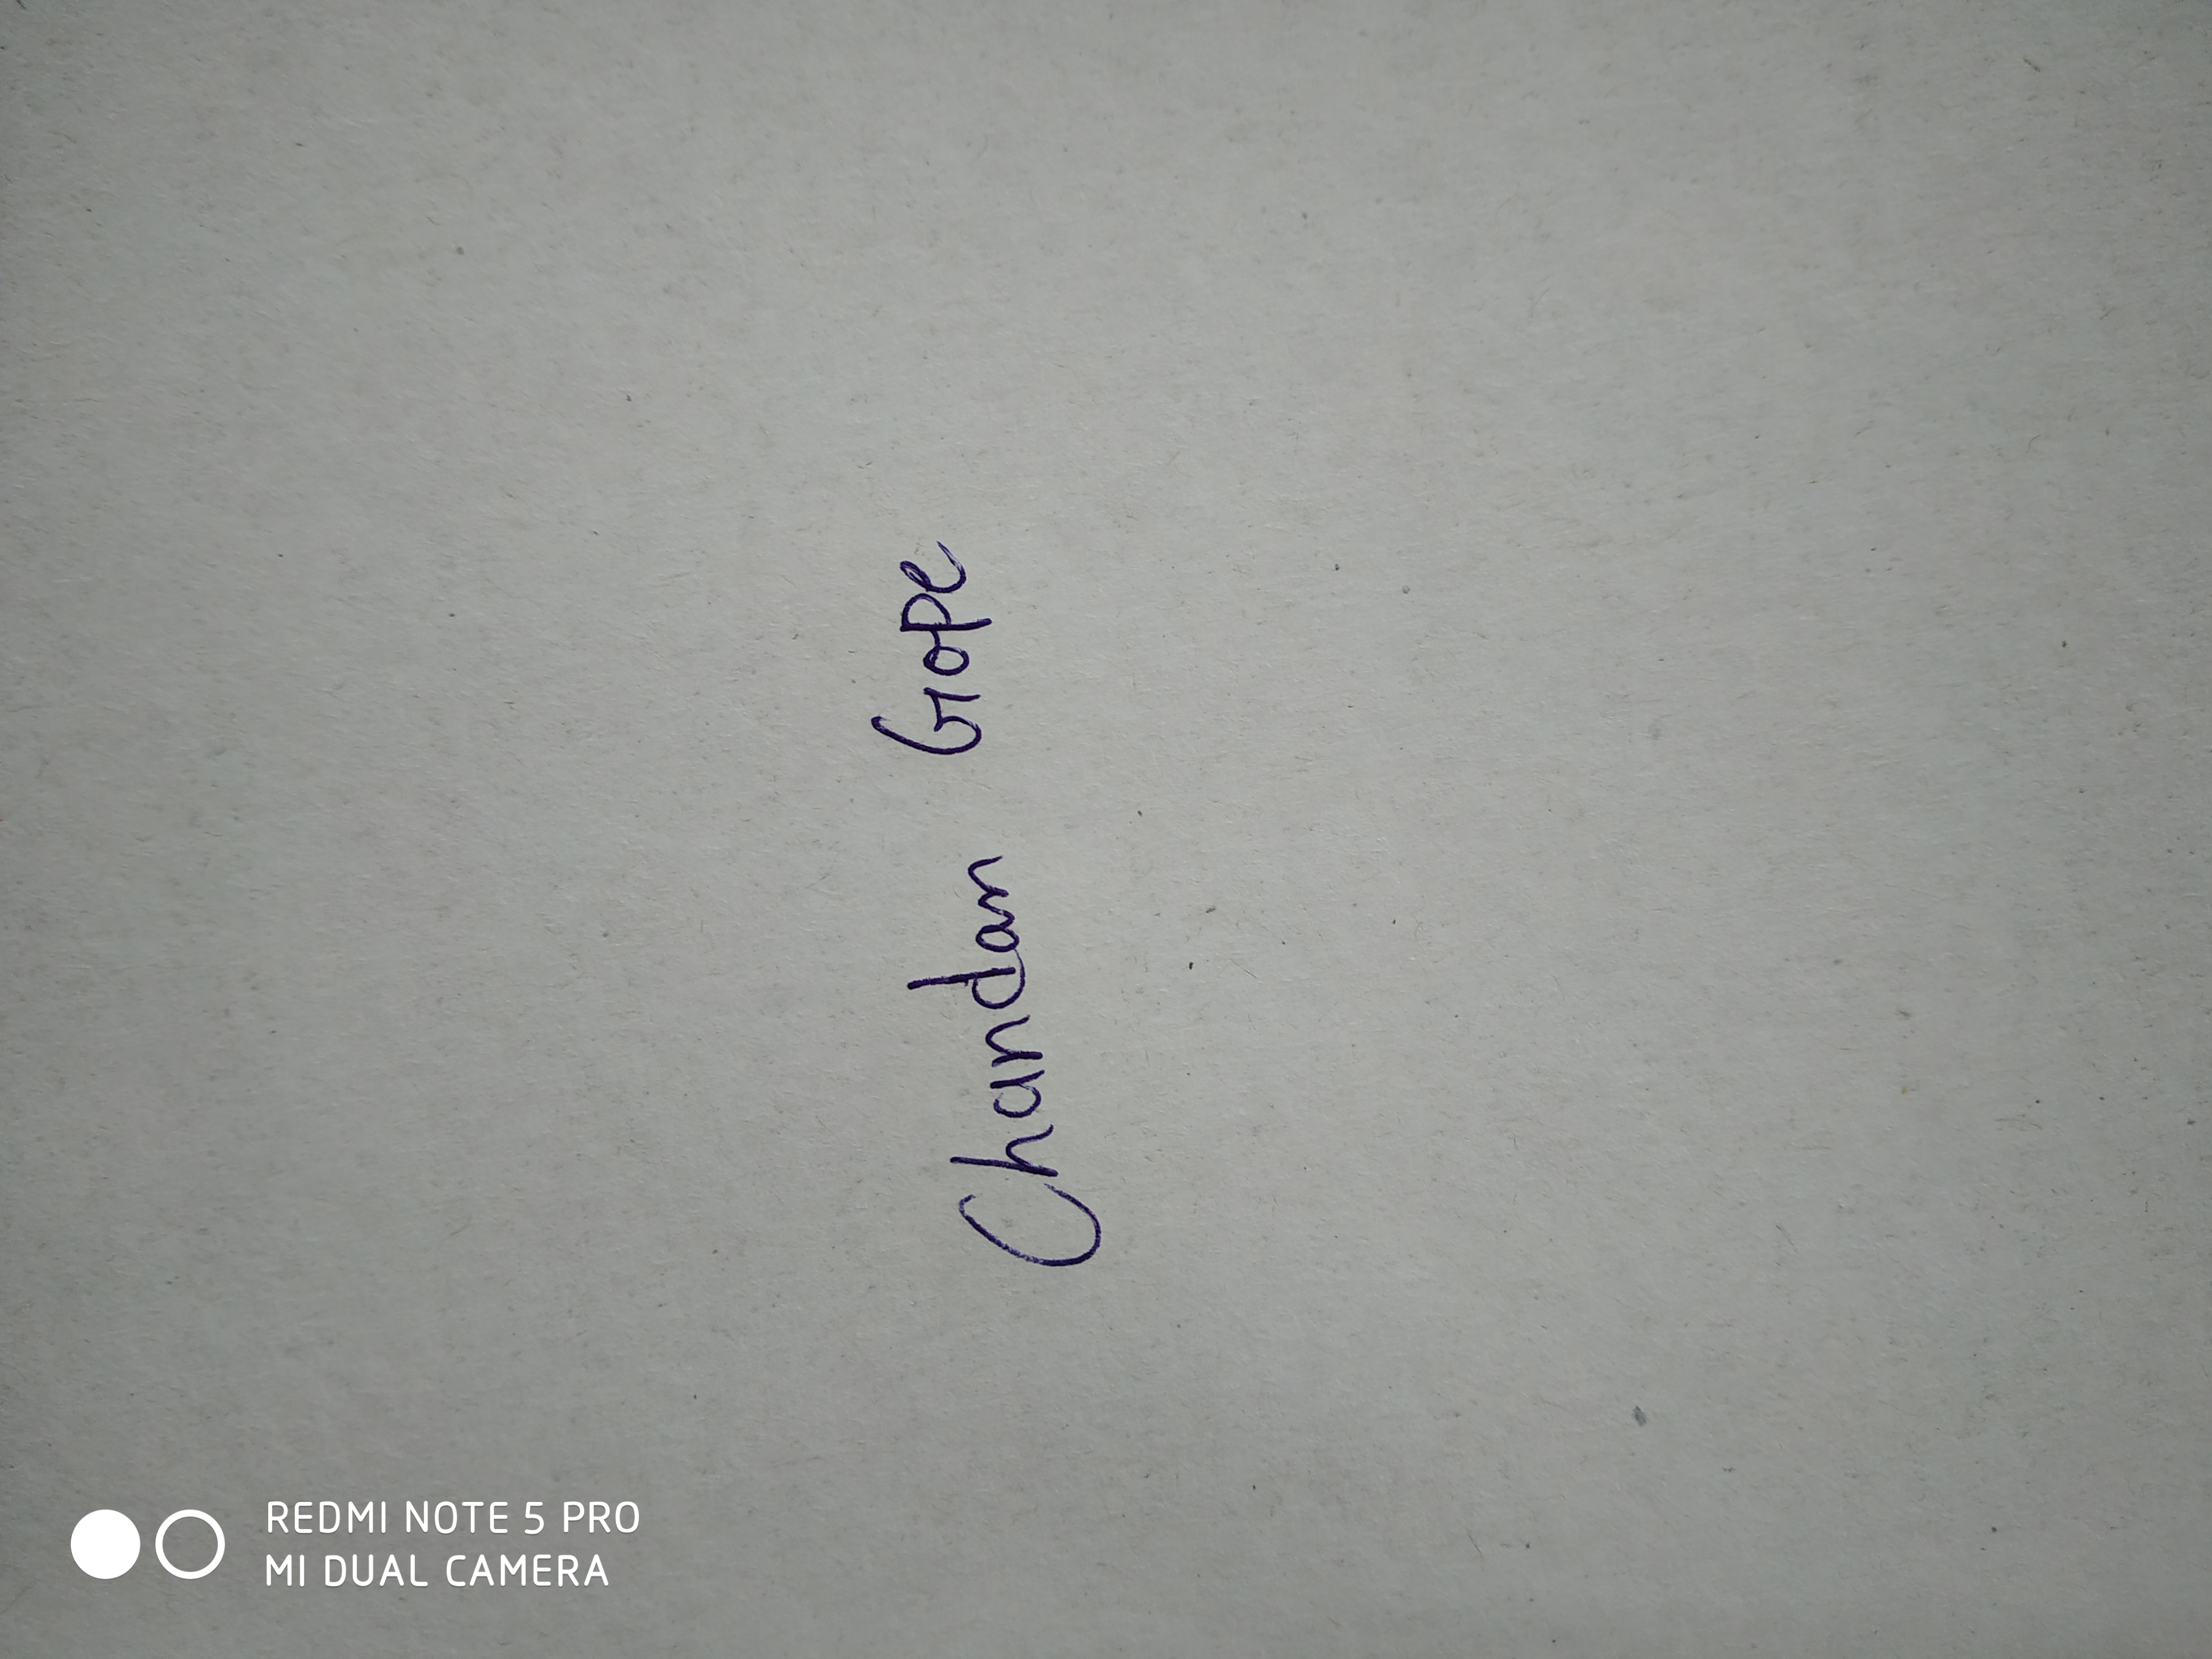 Chandan Gope
REDMI NOTE 5 PRO
MI DUAL CAMERA